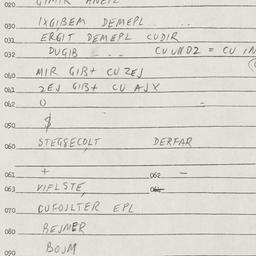 020 GIMIR ANEIL
030 IXGIBEM DEMEPL
031 ERGIT DEMEPL CUDIR
032 DUGIB - - CUUNDZ = CU IN
040 MIR GIB+ CU ZEJ
041 ZEJ GIB+ CU AJX
042 O -
050 $
060 STEGSECOLT DERFAR
061 + 062 -
063 VIFLSTE,
070 CUFOJLTER EPL
080 BEJMER
090 BOJM